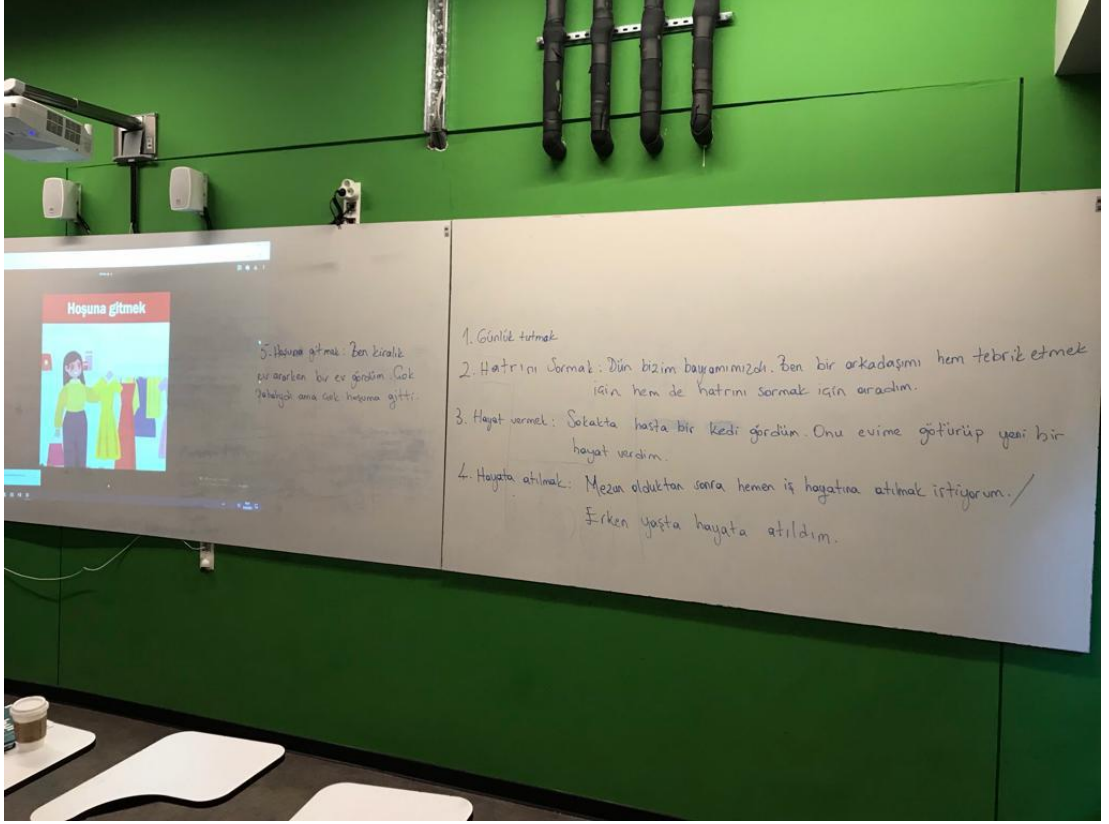 Hoşuna gitmek
5. Hoşuna gitmek: Ben kiralık
ev ararken bu ev gördüm. Çok
pahalıydı ama çok hoşuma gitti.
1. Günlük tutmak
2. Hatrını Sormak: Dün bizim bayramımızdı. Ben bir arkadaşımı hem tebrik etmek
için hem de hatrını sormak için aradım.
3. Hayat vermek: Sokakta hasta bir kedi gördüm. Onu evime götürüp yeni bir
hayat verdim.
4. Hayata atılmak: Mezun olduktan sonra hemen iş hayatına atılmak istiyorum. /
Erken yaşta hayata atıldım.